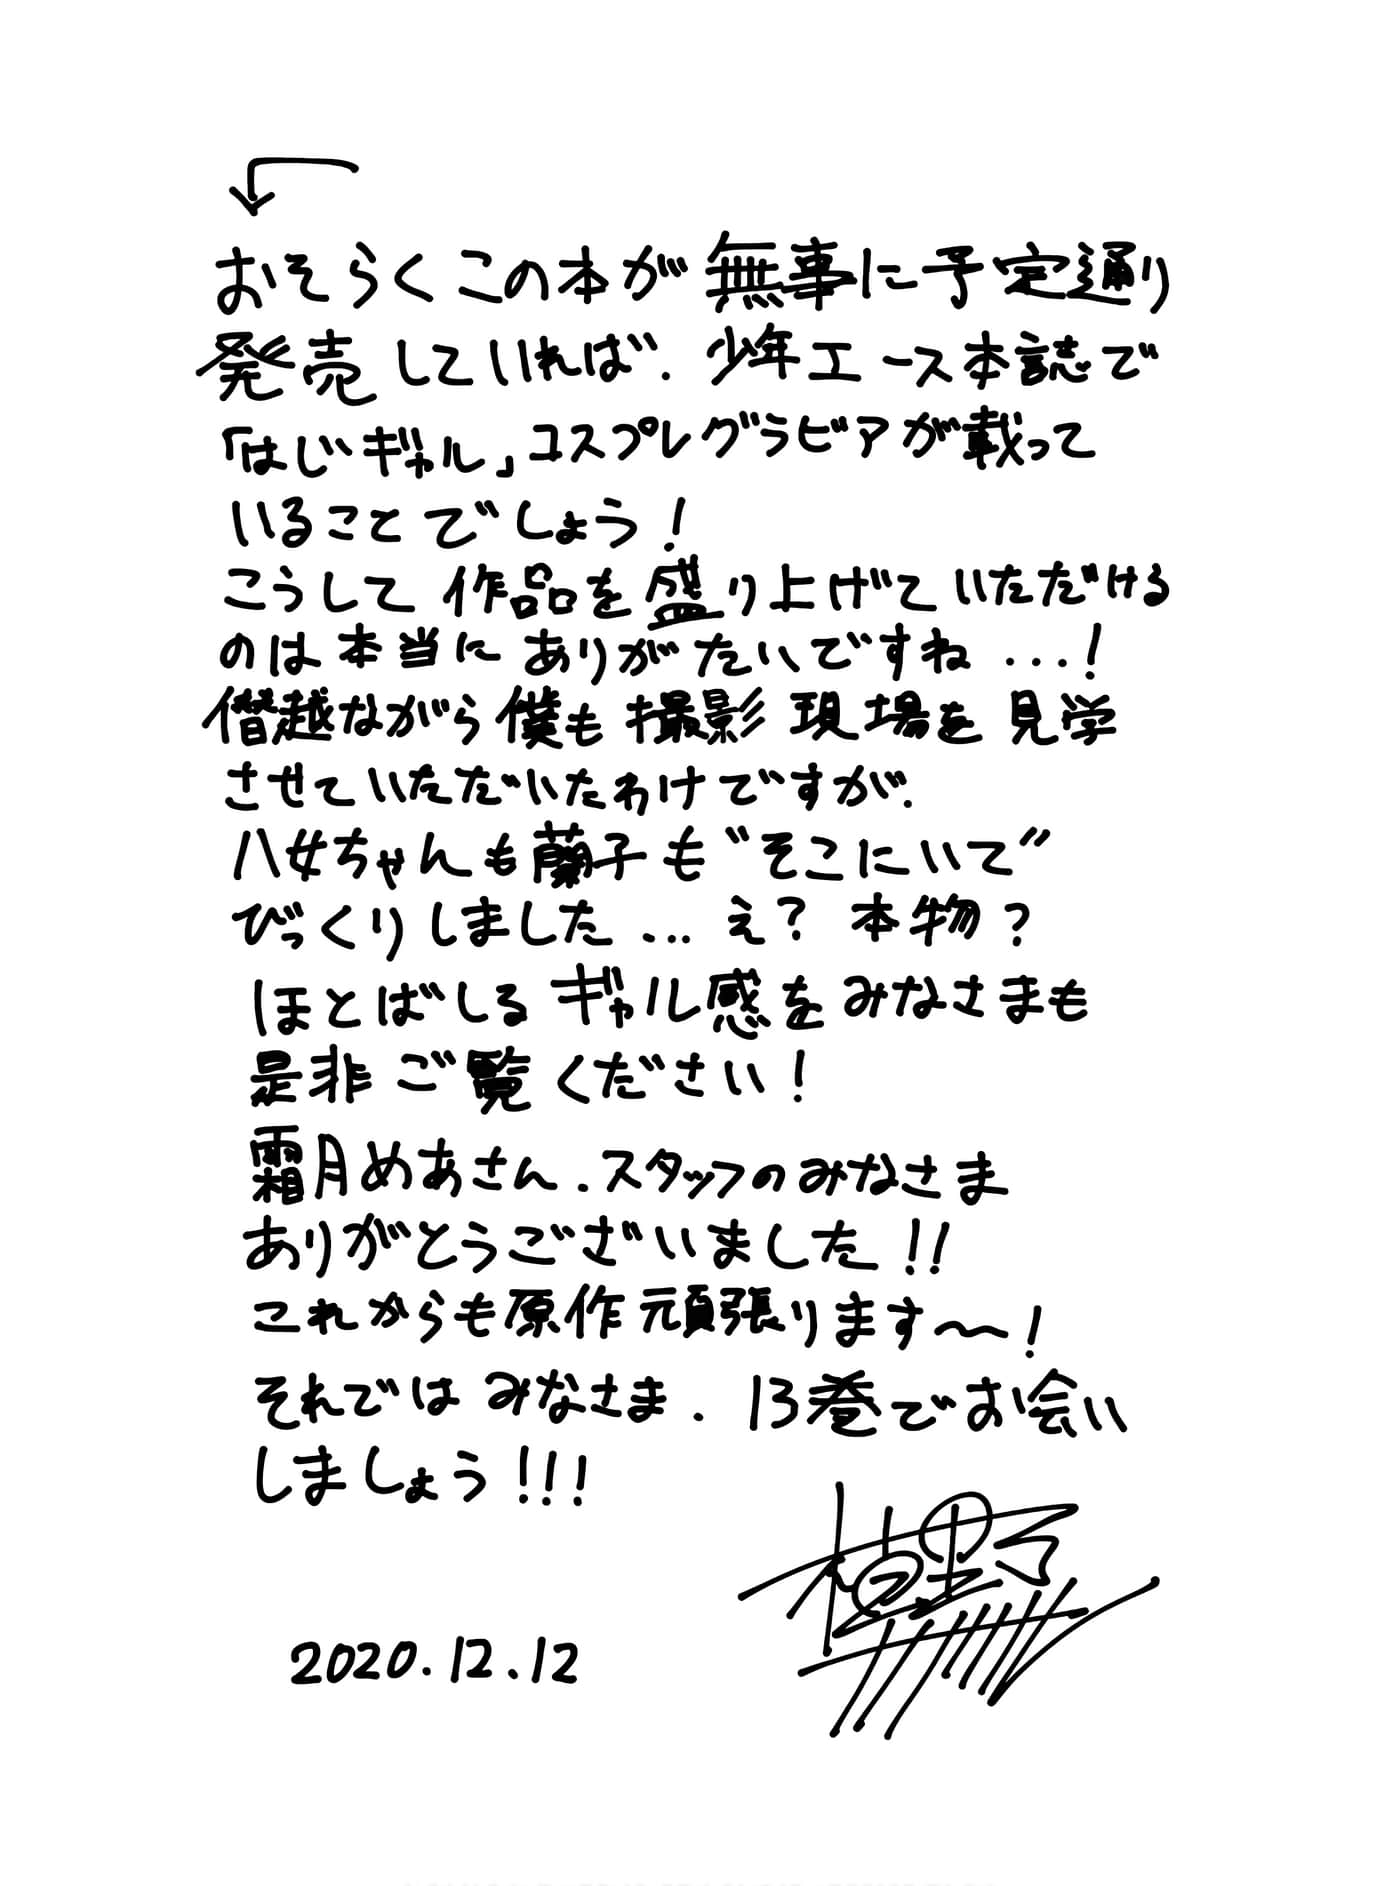 おそらくこの本が無事に予定通り
発売していれば、少年エース本誌で
「はじギャル」コスプレグラビアが載って
いることでしょう！
こうして作品を盛り上げていただける
のは本当にありがたいですね…！
僭越ながら僕も撮影現場を見学
させていただいたわけですが、
八女ちゃんも蘭子も"そこにいて"
びっくりしました…え？本物？
ほとばしるギャル感をみなさまも
是非ご覧ください！
霜月めあさん、スタッフのみなさま
ありがとうございました！！
これからも原作頑張ります〜！
それではみなさま、13巻でお会い
しましょう！！！
2020.12.12